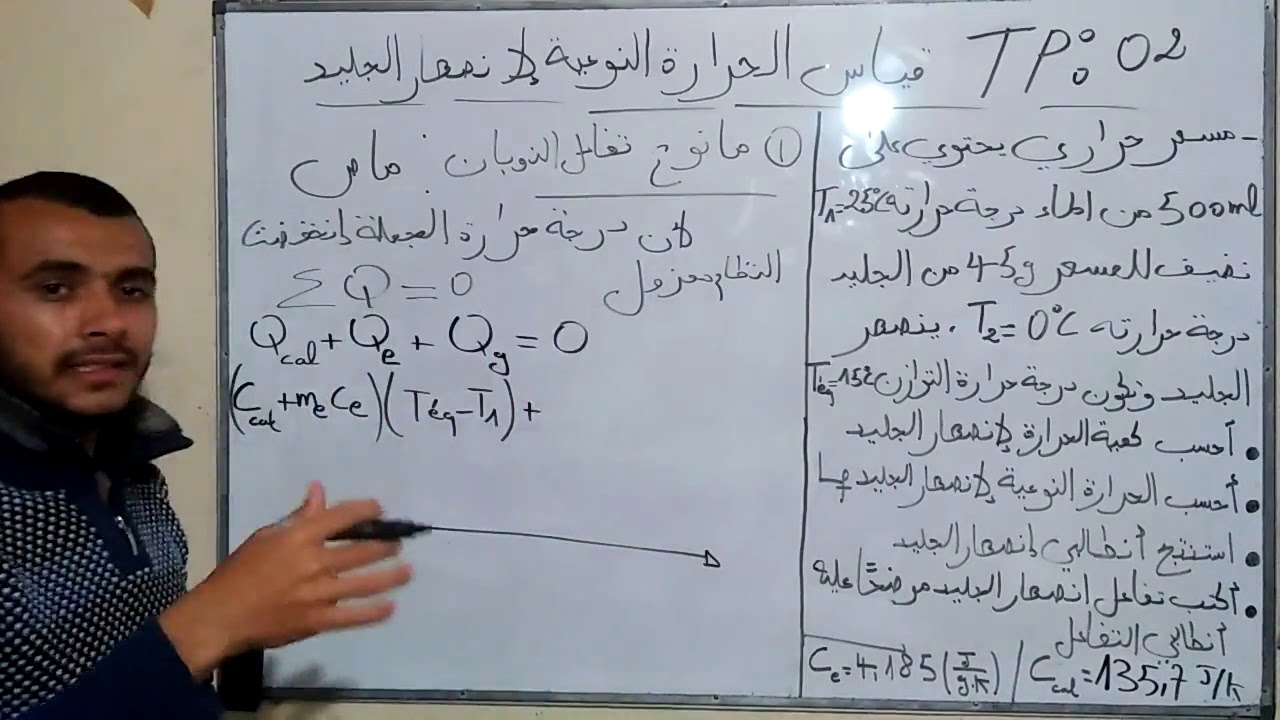 TP: 02 قياس الحرارة النوعية لإنصهار الجليد
- مسعر حراري يحتوي على
500ml من الماء درجة حرارته T₁=25°C
نضيف للمسعر 45g من الجليد
درجة حرارته T₂=0°C . ينصهر
الجليد وتكون درجة حرارة التوازن Téq=15°C
• أحسب كمية الحرارة لإنصهار الجليد
• أحسب الحرارة النوعية لإنصهار الجليد Lf
• استنتج أنطالبي انصهار الجليد
• أكتب تفاعل انصهار الجليد موضحًا عليه
أنطالبي التفاعل
Ce=4,185 (J/g.K) / Ccal=135,7 J/K
① ما نوع تفاعل الذوبان : ماص
لأن درجة حرارة الجملة إنخفضت
النظام معزول
ΣQ=0
Qcal+Qe+Qg=0
(Ccal+meCe)(Téq-T1)+